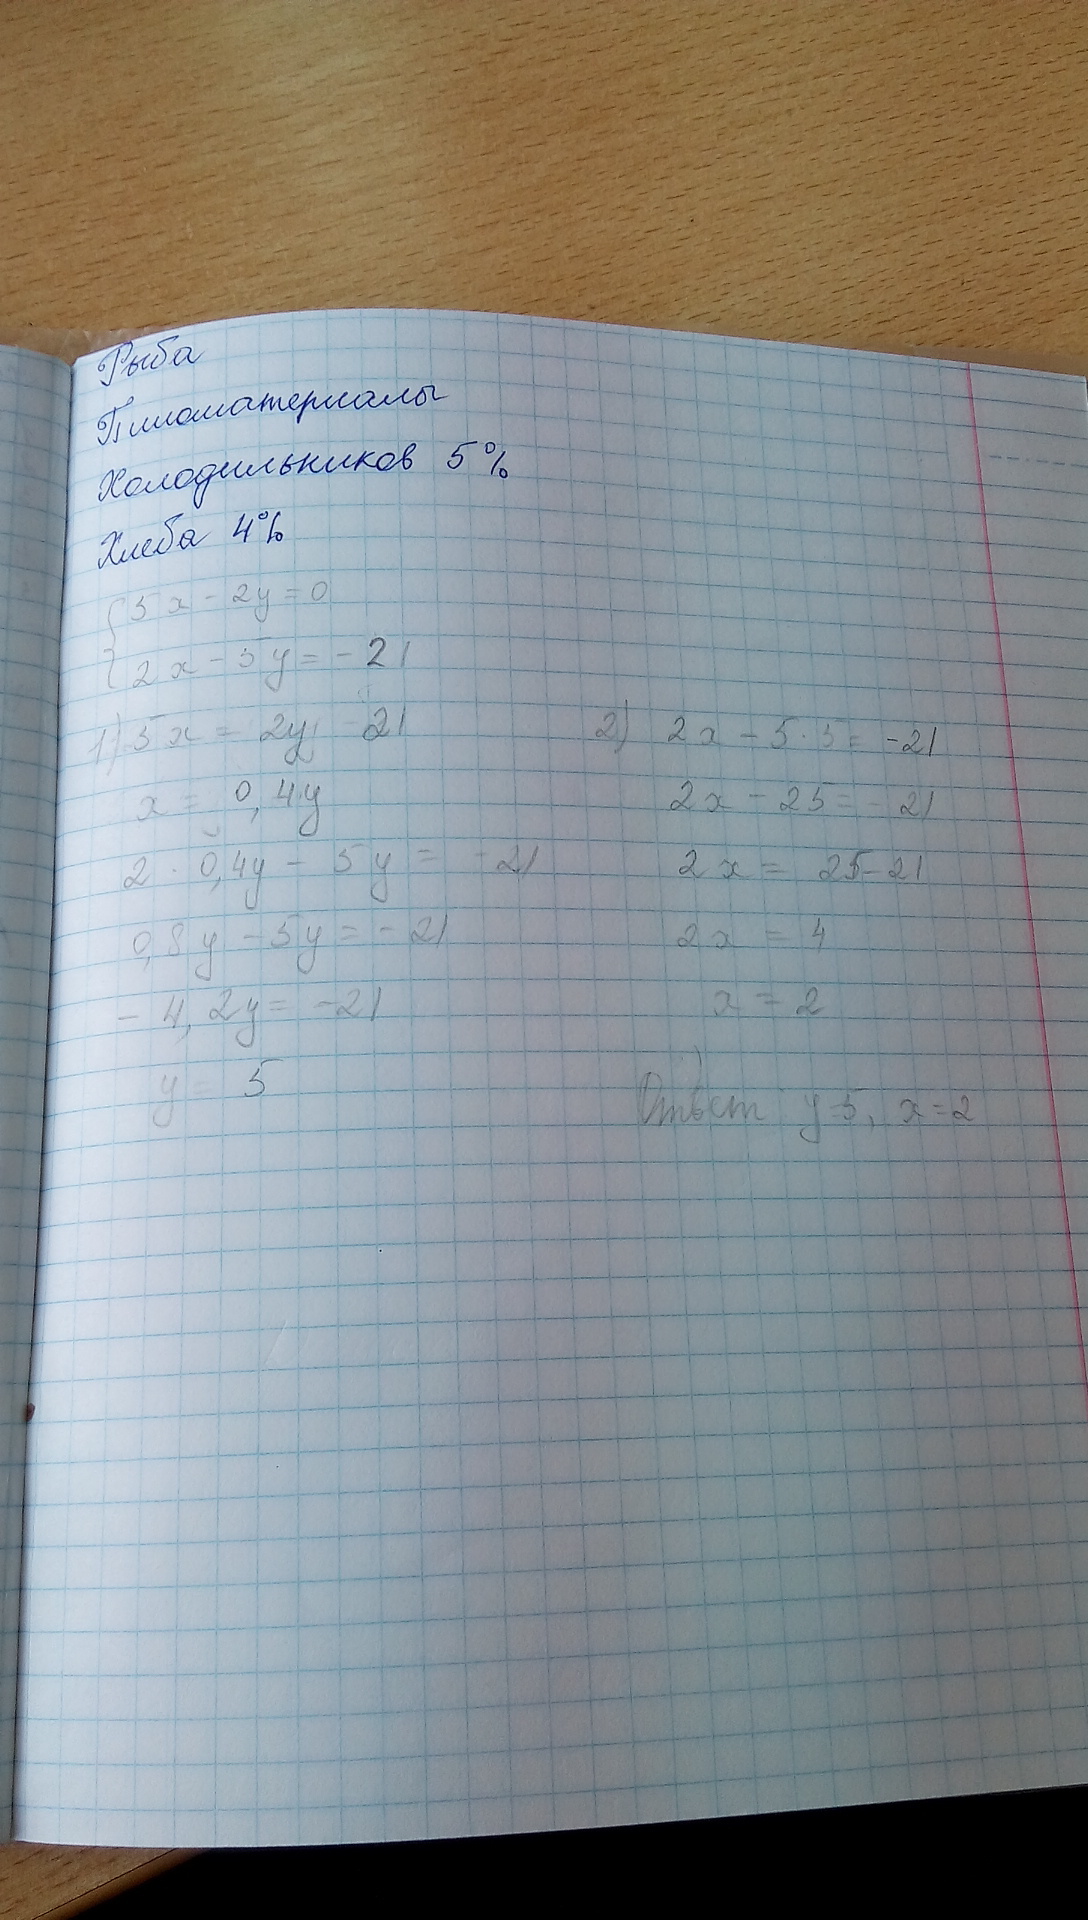 Рыба
Пиломатериалы
Холодильников 5%
Хлеба 4%
5x - 2y = 0
2x - 5y = -21
1) 5x = 2y - 21
x = 0,4y
2 · 0,4y - 5y = -21
0,8y - 5y = -21
- 4,2y = -21
y = 5
2) 2x - 5·5 = -21
2x - 25 = -21
2x = 25-21
2x = 4
x = 2
Ответ y=5, x=2